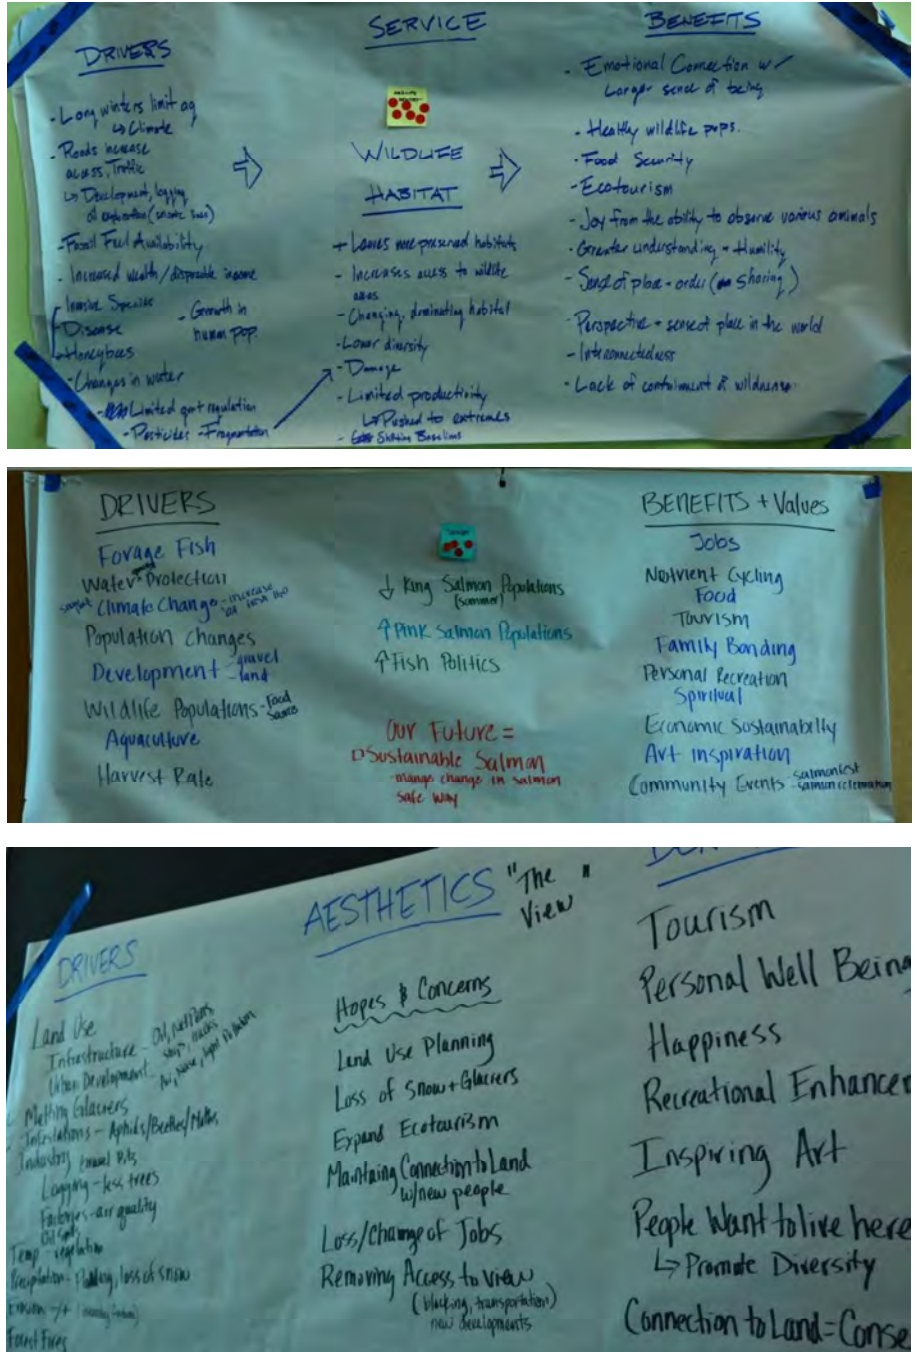 DRIVERS
- Long winters limit ag
↳ Climate
- Roads increase
access, Traffic
↳ Development, logging
oil exploration
- Fossil Fuel Availability
- Increased wealth/disposable income
Invasive Species
Disease
Honeybees
- Growth in
human pop.
- Changes in water
- Limited gmt regulation
- Pesticides - Fragmentation
SERVICE
WILDLIFE
HABITAT
+ Leaves more preserved habitats
- Increases access to wildlife
areas
- Changing, dominating habitat
- Lower diversity
- Damage
- Limited productivity
↳ Pushed to extremes
- Shifting Baselines
BENEFITS
- Emotional Connection w/
Larger sense of being
- Healthy wildlife pops.
- Food Security
- Ecotourism
- Joy from the ability to observe various animals
- Greater understanding + Humility
- Sense of place - order ( Sharing)
- Perspective + sense of place in the world
- Interconnectedness
- Lack of containment of wildness
DRIVERS
Forage Fish
Water Protection
Climate Change - increase
Population Changes
Development - gravel
- land
Wildlife Populations - Food
Source
Aquaculture
Harvest Rate
↓ King Salmon Populations
(summer)
↑ Pink Salmon Populations
↑ Fish Politics
Our Future =
Sustainable Salmon
- mange change in salmon
safe way
BENEFITS + Values
Jobs
Nutrient Cycling
Food
Tourism
Family Bonding
Personal Recreation
Spiritual
Economic Sustainability
Art Inspiration
Community Events - salmonfest
- salmon celebration
DRIVERS
Land Use
Infrastructure - Oil, Net Pens
ships, trucks
Urban Development - Air, Noise, Light Pollution
Melting Glaciers
Infestations - Aphids/Beetles/Moths
Industry Gravel Pits
Logging - less trees
Factories - air quality
Oil Spills
Temp - vegetation
Precipitation - Flooding, loss of snow
Erosion -/+
Forest Fires
AESTHETICS "The
View"
Hopes & Concerns
Land Use Planning
Loss of Snow + Glaciers
Expand Ecotourism
Maintaing Connection to Land
w/new people
Loss/Change of Jobs
Removing Access to view
(blocking, transportation)
new developments
Tourism
Personal Well Being
Happiness
Recreational Enhancem
Inspiring Art
People Want to live here
↳ Promote Diversity
Connection to Land = Conse